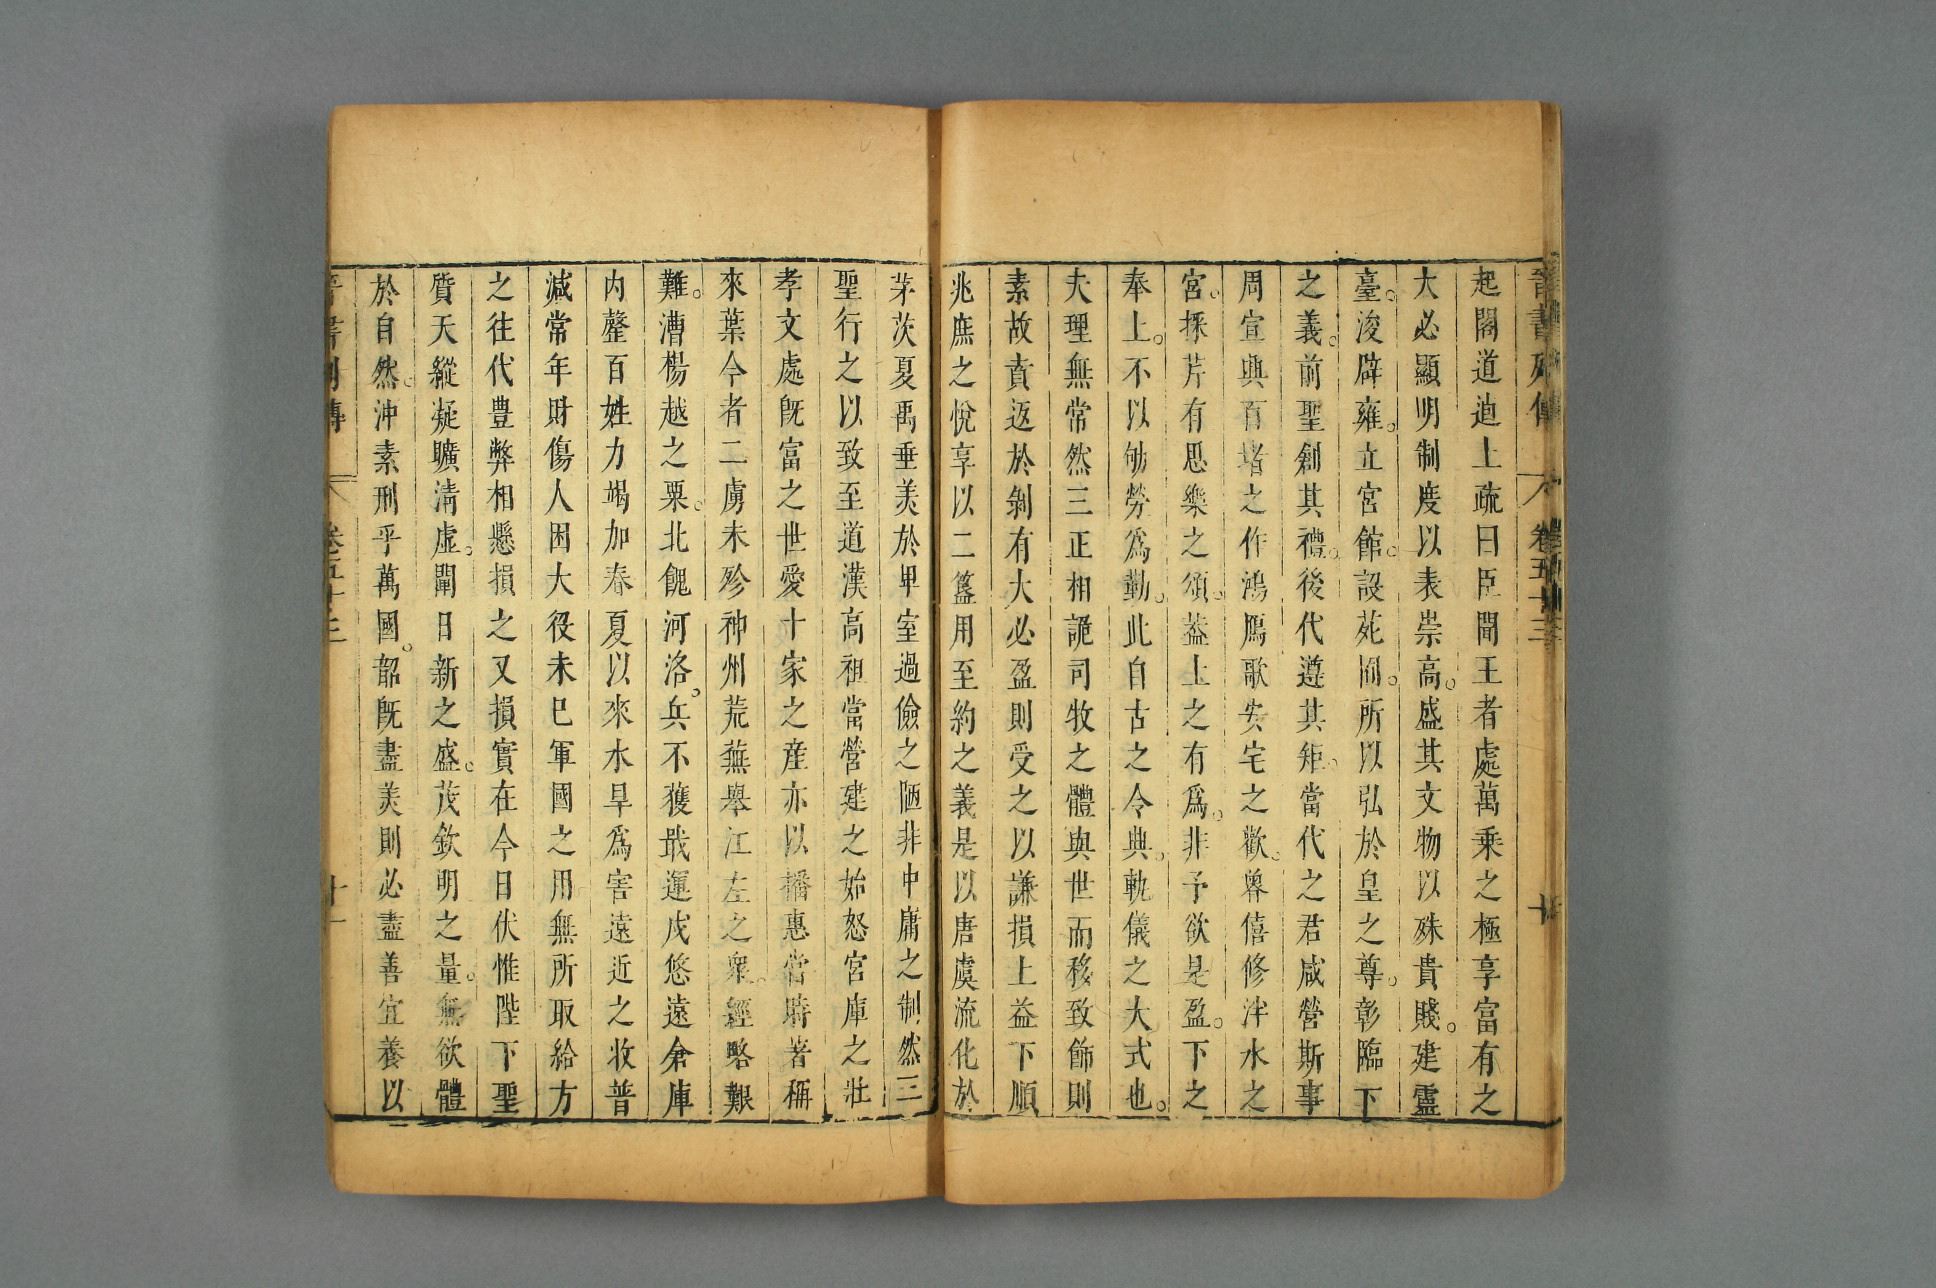 晉書列傳 卷五十三 十
起閣道迪上疏曰臣聞王者處萬乘之極享富有之
大必顯明制度以表崇高。盛其文物以殊貴賤。建靈
臺。浚辟雍。立宮館。設苑囿。所以弘於皇之尊。彰臨下
之義。前聖創其禮。後代遵其矩。當代之君咸營斯事
周宣興百堵之作鴻鴈歌安宅之歡。魯僖修泮水之
宮。採芹有思樂之頌。蓋上之有爲。非予欲是盈。下之
奉上。不以劬勞爲勤。此自古之令典。軌儀之大式也。
夫理無常然三正相詭司牧之體與世而移致飾則
素故賁返於剝有大必盈則受之以謙損上益下順
兆庶之悅享以二簋用至約之義是以唐虞流化於
茅茨夏禹垂美於卑室過儉之陋非中庸之制然三
聖行之以致至道漢高祖當營建之始怒宮庫之壯
孝文處旣富之世愛十家之産亦以播惠當時著稱
來葉今者二虜未殄神州荒蕪舉江左之衆。經略艱
難。漕楊越之粟。北餽河洛。兵不獲戢運戍悠遠倉庫
内罄百姓力竭加春夏以來水旱爲害遠近之收普
減常年財傷人困大役未巳軍國之用無所取給方
之往代豊弊相懸損之又損實在今日伏惟陛下聖
質天縱凝曠清虚。闡日新之盛。茂欽明之量。無欲體
於自然。沖素刑乎萬國。韶旣盡美則必盡善宜養以
晉書列傳 卷五十三 十一